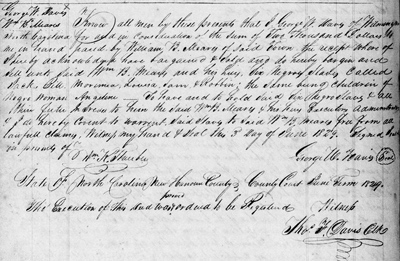 George W. Davis
Wm B. Meares
Know all men by these presents that I George W. Davis of Wilmington
North Carolina for and in consideration of the sum of Two Thousand Dollars to
me in hand paid by William B. Meares of said Town the receipt whereof
I hereby acknowledge have bargained & sold and do hereby bargain and
sell unto said Wm B. Meares and his heirs, Six Negroes slaves called
Jack, Louisa, Sam & the same being children of
Negro Woman To have and to hold said Six Negroes slaves & all
their to him the said Wm B. Meares & his heirs Executors & administrators
& I do hereby Covt to warrant said slaves to said Wm B. Meares free from all
lawful claims, Witness my hand & Seal this 3d day of June 1829. Signed
in presence of
George W. Davis Seal
State of North Carolina New Hanover County County Court June Term 1829.
The Execution of this deed was proved and ordered to be Registered Witness
Thos. F. Davis Clk